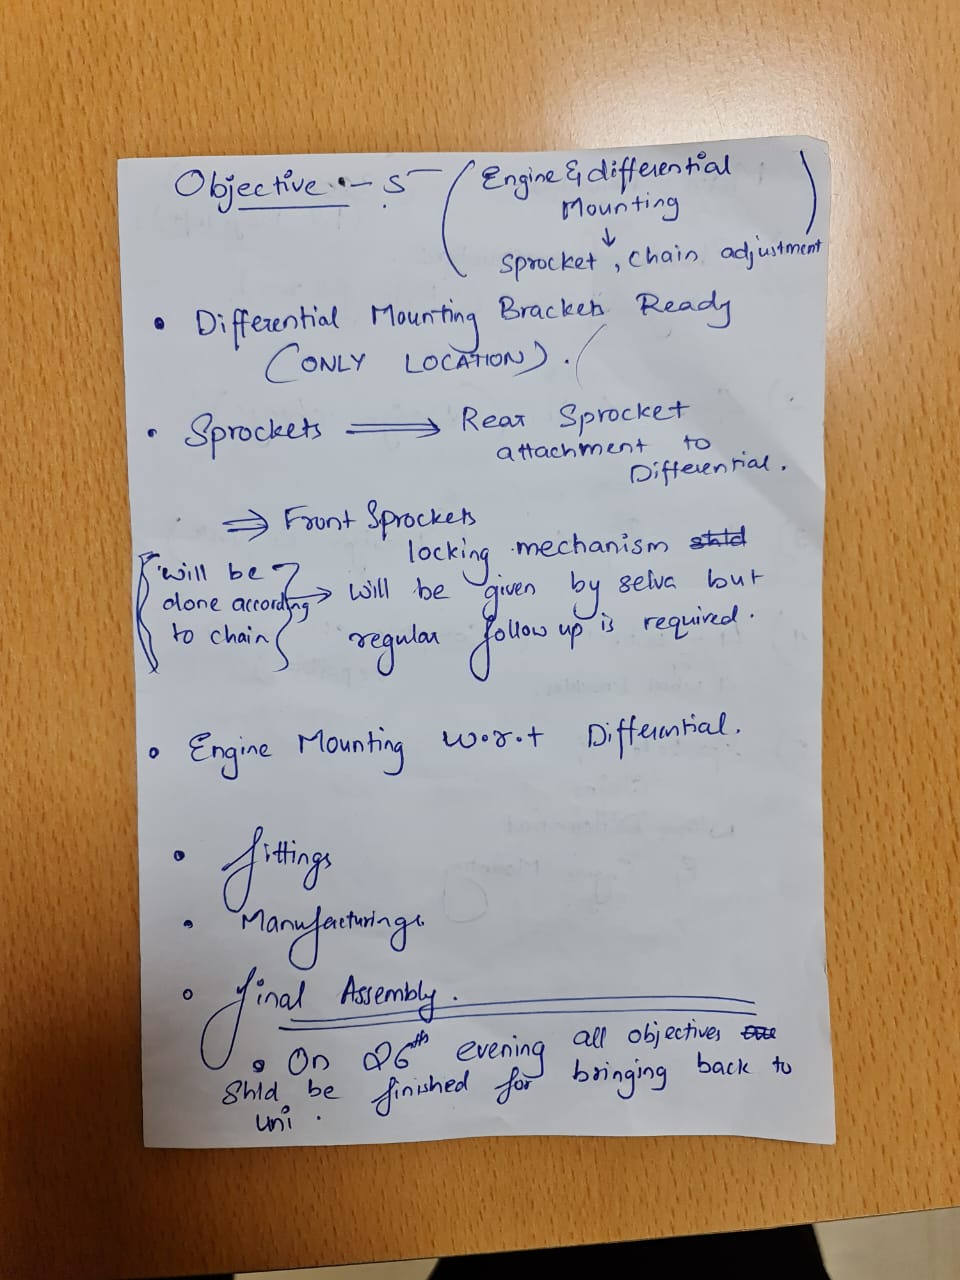 Objective :- 5
(Engine & differential
Mounting
↓
Sprocket, chain adjustment)
• Differential Mounting Brackets Ready
(ONLY LOCATION).
• Sprockets ⟹ Rear Sprocket
attachment to
Differential.
⟹ Front Sprockets
locking mechanism
will be given by selva but
regular follow up is required.
{will be
done according
to chain} →
• Engine Mounting w.r.t Differential.
• fittings
• Manufacturings
• final Assembly.
• On 26th evening all objectives
Shld be finished for bringing back to
uni.